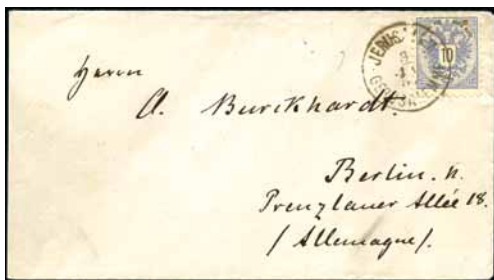 10
Herrn
A. Burckhardt.
Berlin. N.
Prenzlauer Allée 18.
(Allemagne).